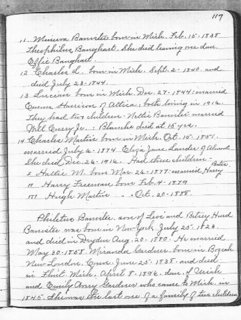 119
11. Minerva Banister born in Mich. Feb. 15 - 1838
Theophilus Banghart. She died leaving one dau.
Effie Banghart
12 Charles H. born in Mich. Sept. 2 - 1840. and
died July 23 - 1864.
13 Lucien born in Mich. Dec. 27 - 1844. married
Emma Harrison of Attica; both living in 1916.
They had two children - Nettie Banister married
Mel Jr.: Blanche died at 15 yrs.
14 Charles Martin born in Mich. Oct. 15 - 1851.
married July 2 - 1874. Eliza Jane Lander of
She died Dec. 26 - 1916. Had three children:
Hattie M. born Mar 26 - 1877. married Harry
Harry Freeman born Feb. 4 - 1879
Hugh Martin " - Oct. 20 - 1888.
Philetus Banister, son of Levi and Betsy Hurd
Banister was born in New York July 25 - 1823.
and died in Dryden Aug. 20 - 1880. He married
May 30 - 1858 Miranda Gardner born in Bozrah
New London, Conn June 25 - 1838. and died
in Flint, Mich. April 8 - 1896. dau. of Uriah
and Emily Avery Gardner who came to Mich. in
1840. She was the last one of a family of ten children